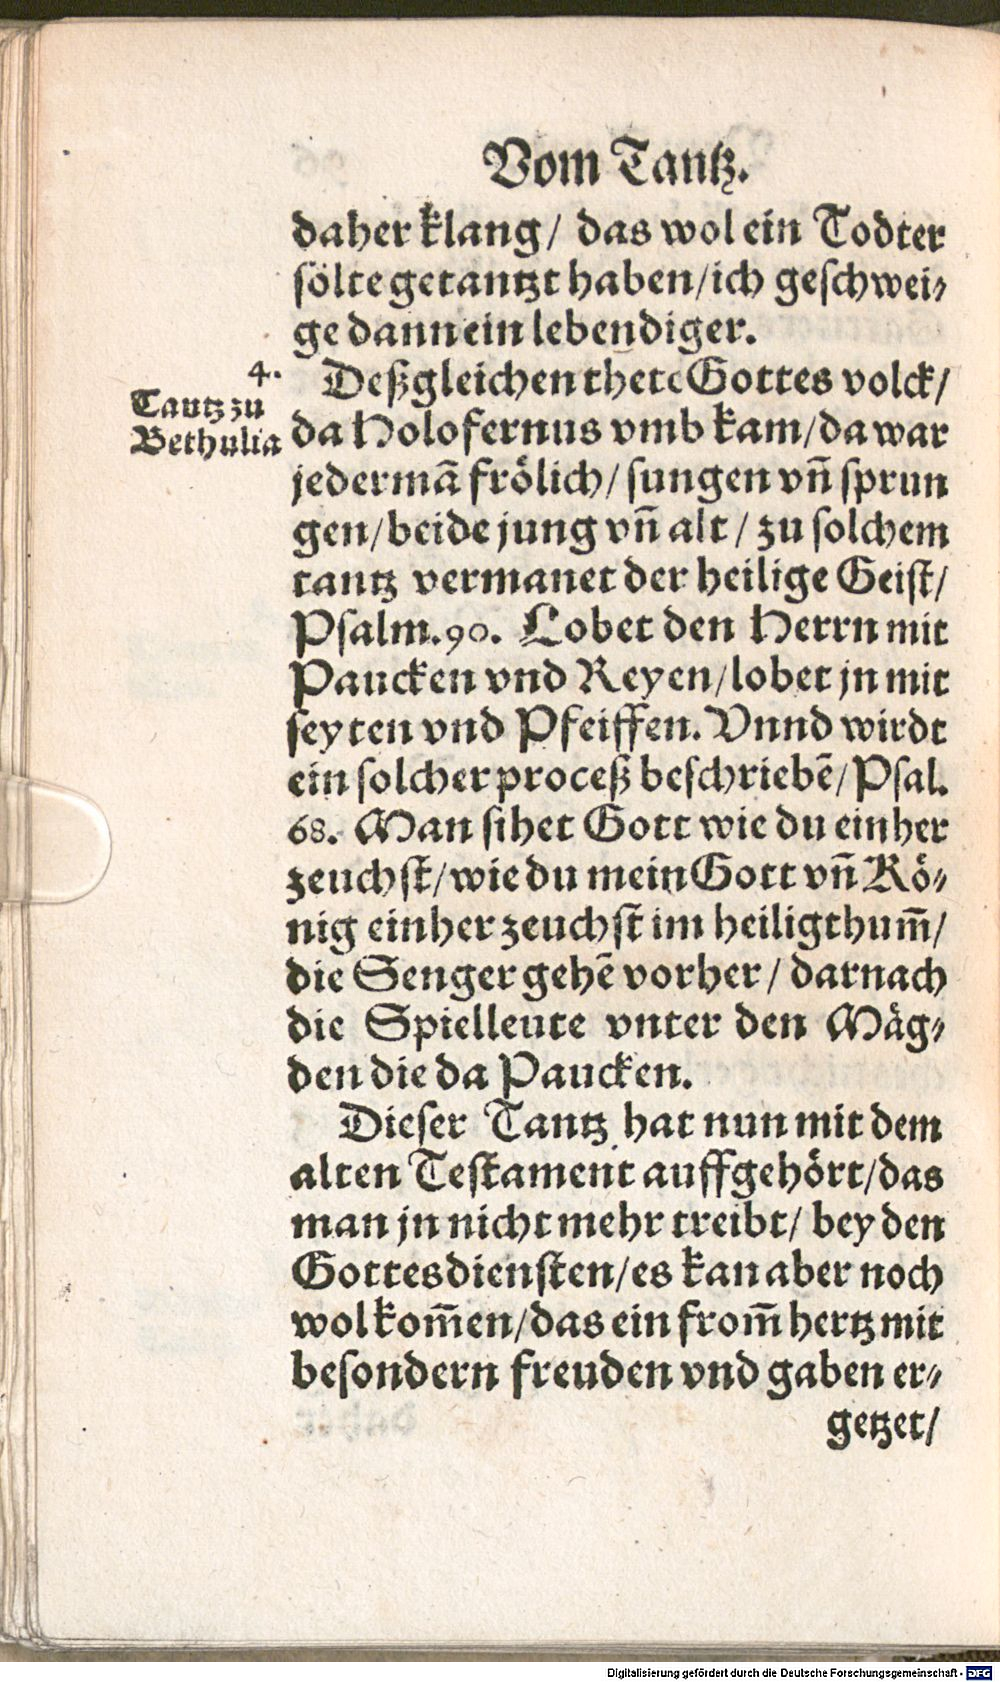 Vom Tantz.
daher klang/ das wol ein Todter
sölte getantzt haben/ich geschwei-
ge dann ein lebendiger.
4.
Tantz zu
Bethulia
Deßgleichen thete Gottes volck/
da Holofernus vmb kam/da war
jedermã frölich/sungen vñ sprun
gen/beide jung vñ alt/ zu solchem
tantz vermanet der heilige Geist/
Psalm.90. Lobet den Herrn mit
Paucken vnd Reyen/lobet jn mit
seyten vnd Pfeiffen. Vnnd wirdt
ein solcher proceß beschriebẽ/Psal.
68. Man sihet Gott wie du einher
zeuchst/wie du mein Gott vñ Kö-
nig einher zeuchst im heiligthum̃/
die Senger gehẽ vorher/ darnach
die Spielleute vnter den Mäg-
den die da Paucken.
Dieser Tantz hat nun mit dem
alten Testament auffgehört/das
man jn nicht mehr treibt/ bey den
Gottesdiensten/es kan aber noch
wol kom̃en/das ein from̃ hertz mit
besondern freuden vnd gaben er-
getzet/
Digitalisierung gefördert durch die Deutsche Forschungsgemeinschaft - DFG